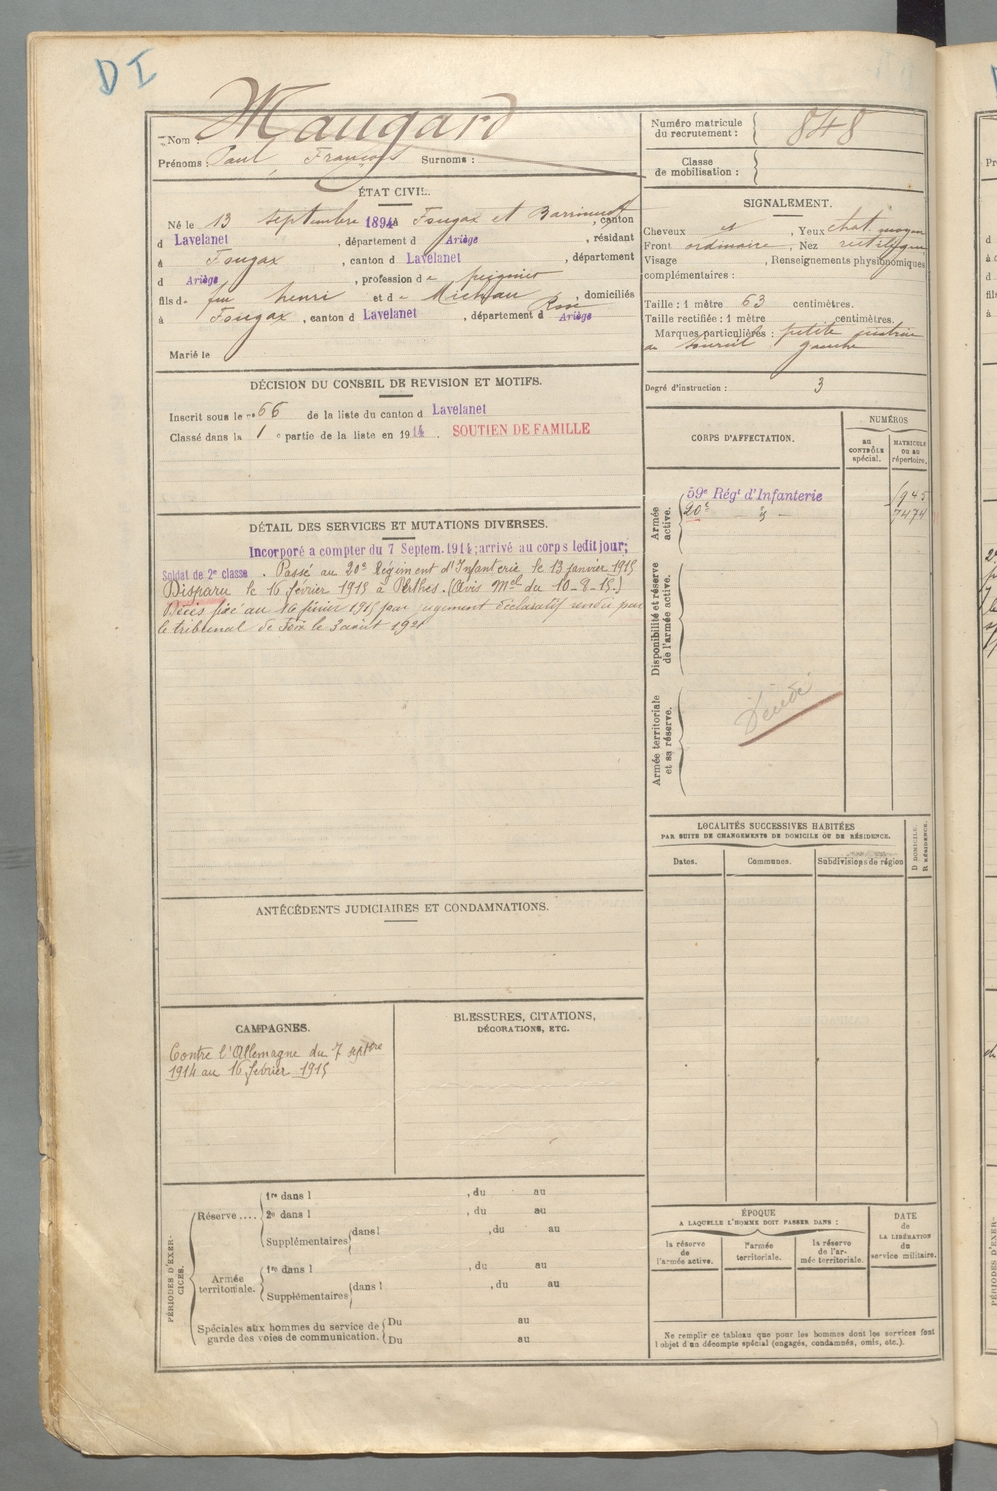 DI
Nom : Maugard
Prénoms : Paul François Surnoms :
Numéro matricule du recrutement : 848
Classe de mobilisation :
ÉTAT CIVIL.
Né le 13 septembre 1894 à Fougax et Barrineuf, canton
d Lavelanet, département d Ariège, résidant
à Fougax, canton d Lavelanet, département
d Ariège, profession de peignier
fils de feu henri et de Micheau Rose, domiciliés
à Fougax, canton d Lavelanet, département d Ariège
Marié le
SIGNALEMENT.
Cheveux , Yeux chat. moyen
Front ordinaire, Nez rectiligne
Visage , Renseignements physionomiques
complémentaires :
Taille : 1 mètre 63 centimètres.
Taille rectifiée : 1 mètre centimètres.
Marques particulières : petite
au sourcil gauche
Degré d'instruction : 3
DÉCISION DU CONSEIL DE REVISION ET MOTIFS.
Inscrit sous le no 66 de la liste du canton d Lavelanet
Classé dans la 1 e partie de la liste en 1914. SOUTIEN DE FAMILLE
DÉTAIL DES SERVICES ET MUTATIONS DIVERSES.
Incorporé a compter du 7 Septem. 1914; arrivé au corps ledit jour;
Soldat de 2e classe. Passé au 20e Régiment d'Infanterie le 13 janvier 1915
Disparu le 16 février 1915 à Perthes. (Avis Mel du 10-8-15.)
Décès fixé au 16 février 1915 par jugement déclaratif rendu par
le tribunal de Foix le 3 août 1921
CORPS D'AFFECTATION.
NUMÉROS
au CONTRÔLE spécial.
MATRICULE OU AU répertoire.
Armée active.
59e Régt d'Infanterie 1945
20e - d° - 7474
Disponibilité et réserve de l'armée active.
Armée territoriale et sa réserve.
Décédé
LOCALITÉS SUCCESSIVES HABITÉES
PAR SUITE DE CHANGEMENTS DE DOMICILE OU DE RÉSIDENCE.
Dates. Communes. Subdivisions de région
D DOMICILE.
R RÉSIDENCE.
ANTÉCÉDENTS JUDICIAIRES ET CONDAMNATIONS.
CAMPAGNES.
Contre l'Allemagne du 7 septbre
1914 au 16 février 1915
BLESSURES, CITATIONS,
DÉCORATIONS, ETC.
PÉRIODES D'EXERCICES.
Réserve ....
1re dans l , du au
2e dans l , du au
Supplémentaires dans l , du au
Armée territoriale.
1re dans l , du au
Supplémentaires dans l , du au
Spéciales aux hommes du service de garde des voies de communication.
Du au
Du au
ÉPOQUE
A LAQUELLE L'HOMME DOIT PASSER DANS :
la réserve de l'armée active.
l'armée territoriale.
la réserve de l'armée territoriale.
DATE de LA LIBÉRATION du service militaire.
Ne remplir ce tableau que pour les hommes dont les services font
l'objet d'un décompte spécial (engagés, condamnés, omis, etc.).